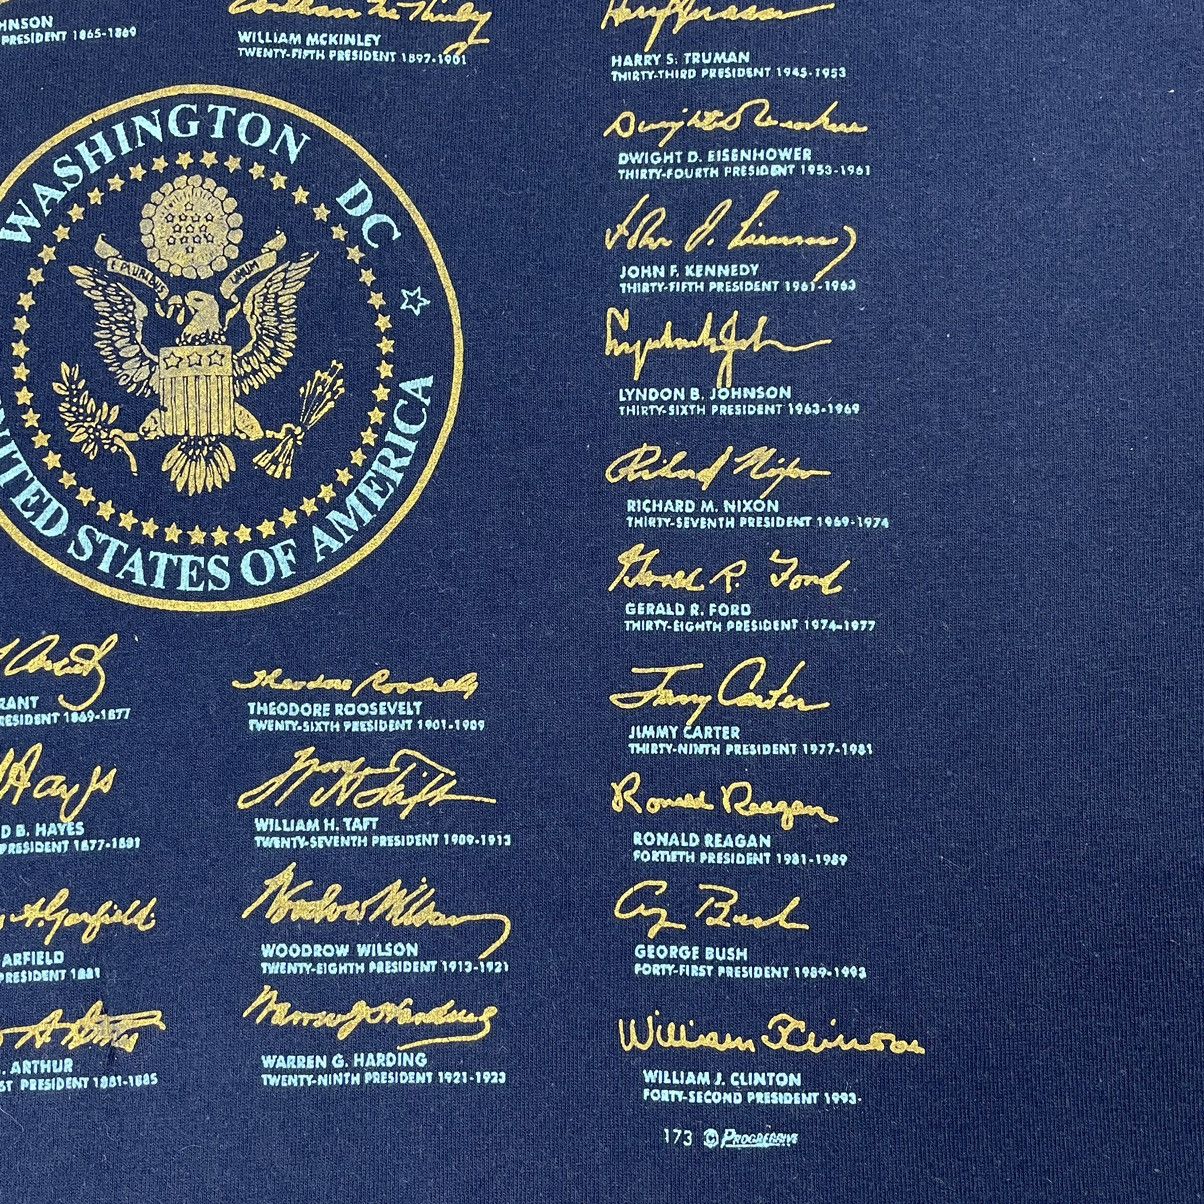 HNSON
PRESIDENT 1865-1869
William McKinley
WILLIAM MCKINLEY
TWENTY-FIFTH PRESIDENT 1897-1901
WASHINGTON DC
E PLURIBUS UNUM
UNITED STATES OF AMERICA
RANT
RESIDENT 1869-1877
Hayes
D B. HAYES
PRESIDENT 1877-1881
A. Garfield
ARFIELD
PRESIDENT 1881
A. Arthur
. ARTHUR
ST PRESIDENT 1881-1885
Theodore Roosevelt
THEODORE ROOSEVELT
TWENTY-SIXTH PRESIDENT 1901-1909
Wm H Taft
WILLIAM H. TAFT
TWENTY-SEVENTH PRESIDENT 1909-1913
Woodrow Wilson
WOODROW WILSON
TWENTY-EIGHTH PRESIDENT 1913-1921
Warren G Harding
WARREN G. HARDING
TWENTY-NINTH PRESIDENT 1921-1923
Harry S Truman
HARRY S. TRUMAN
THIRTY-THIRD PRESIDENT 1945-1953
Dwight D Eisenhower
DWIGHT D. EISENHOWER
THIRTY-FOURTH PRESIDENT 1953-1961
John F. Kennedy
JOHN F. KENNEDY
THIRTY-FIFTH PRESIDENT 1961-1963
Lyndon B. Johnson
LYNDON B. JOHNSON
THIRTY-SIXTH PRESIDENT 1963-1969
Richard Nixon
RICHARD M. NIXON
THIRTY-SEVENTH PRESIDENT 1969-1974
Gerald R. Ford
GERALD R. FORD
THIRTY-EIGHTH PRESIDENT 1974-1977
Jimmy Carter
JIMMY CARTER
THIRTY-NINTH PRESIDENT 1977-1981
Ronald Reagan
RONALD REAGAN
FORTIETH PRESIDENT 1981-1989
Bush
GEORGE BUSH
FORTY-FIRST PRESIDENT 1989-1993
William J Clinton
WILLIAM J. CLINTON
FORTY-SECOND PRESIDENT 1993-
173 © PROGRESSIVE